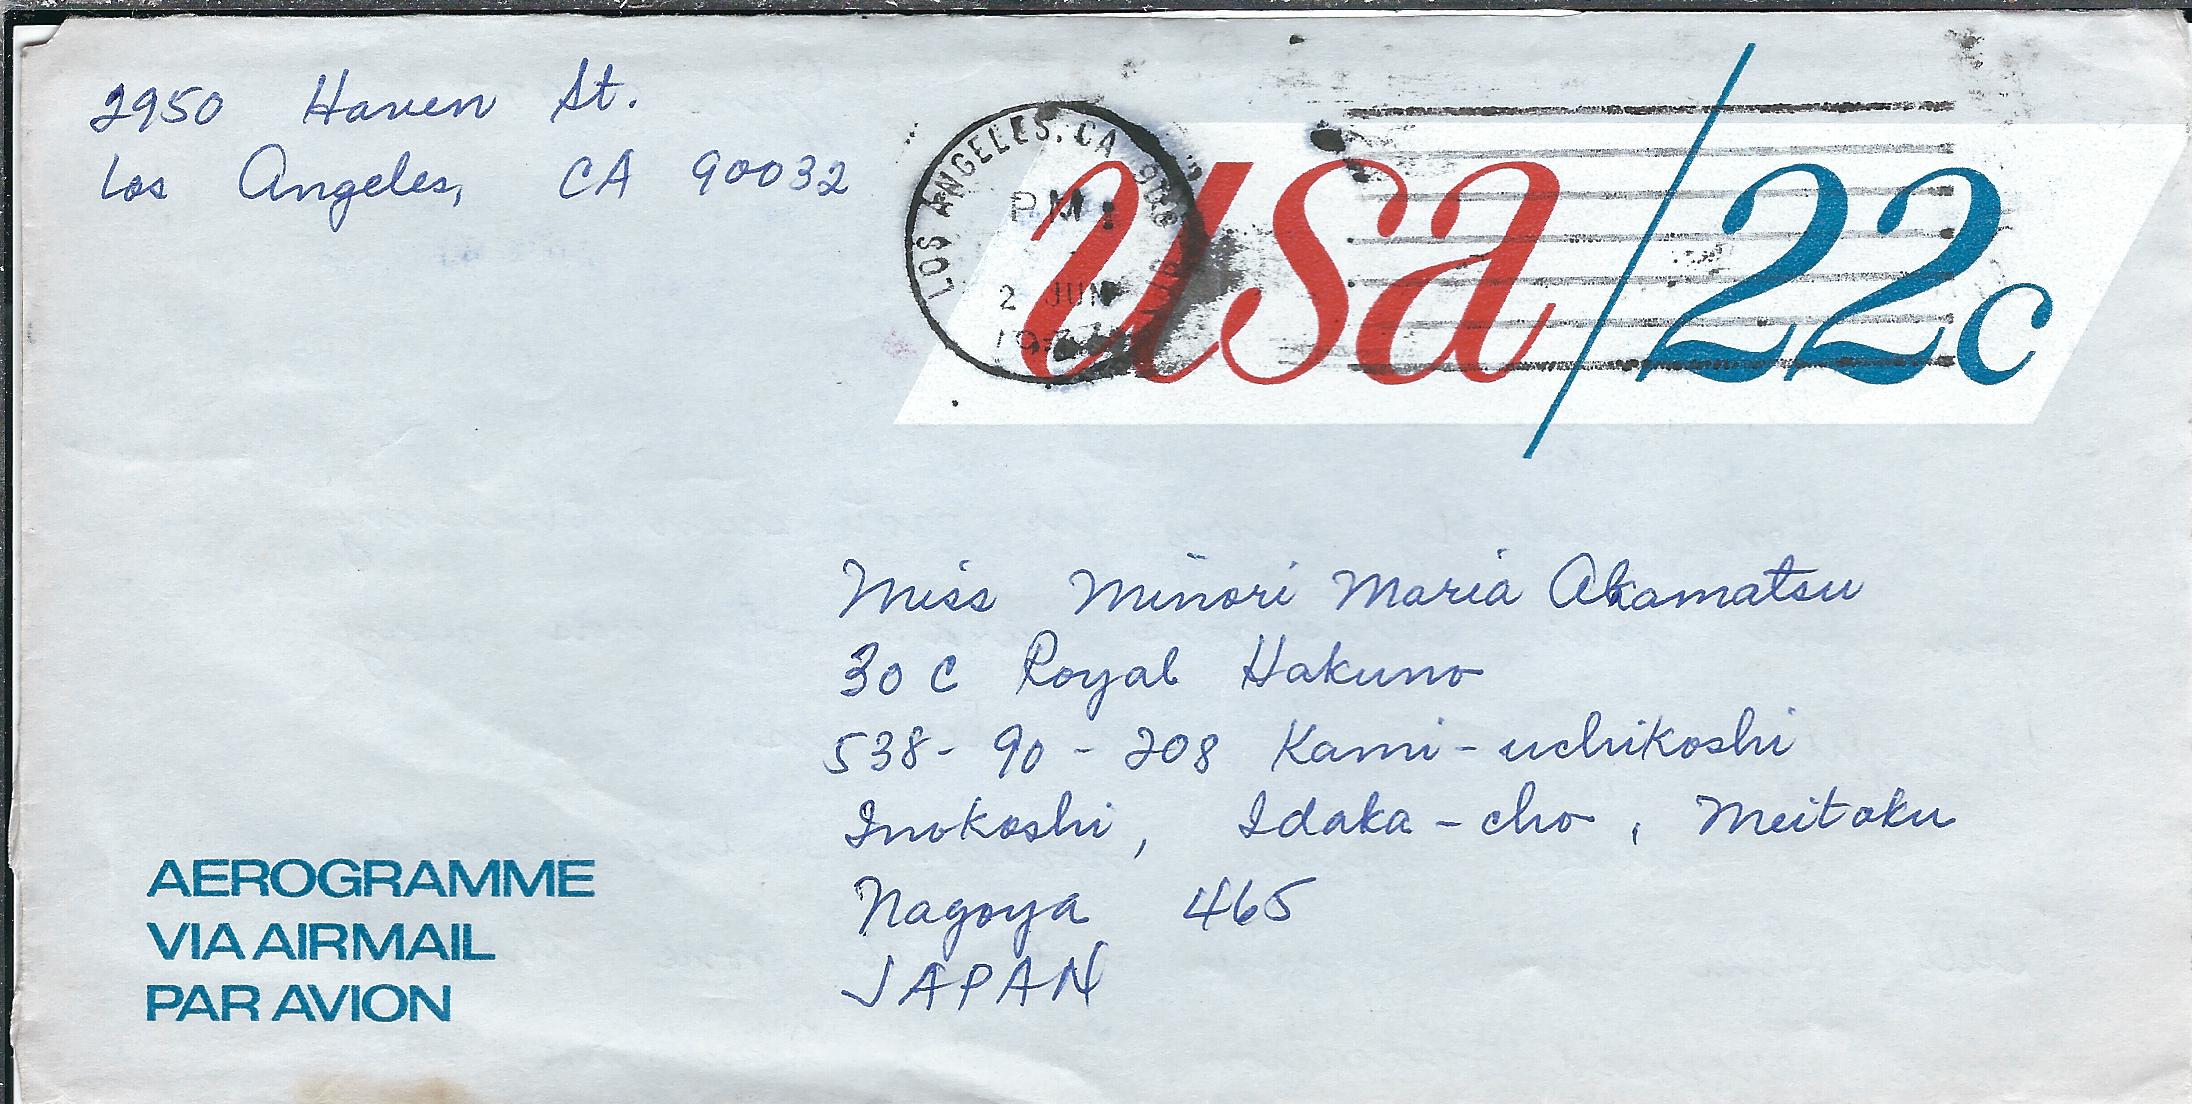 2950 Haven St.
Los Angeles, CA 90032
LOS ANGELES, CA
PM
2 JUN
usa/22c
Miss Minori Maria Akamatsu
30 C Royal Hakuno
538-90-208 Kami-uchikoshi
Inokoshi, Idaka-cho, Meitoku
Nagoya 465
JAPAN
AEROGRAMME
VIA AIRMAIL
PAR AVION